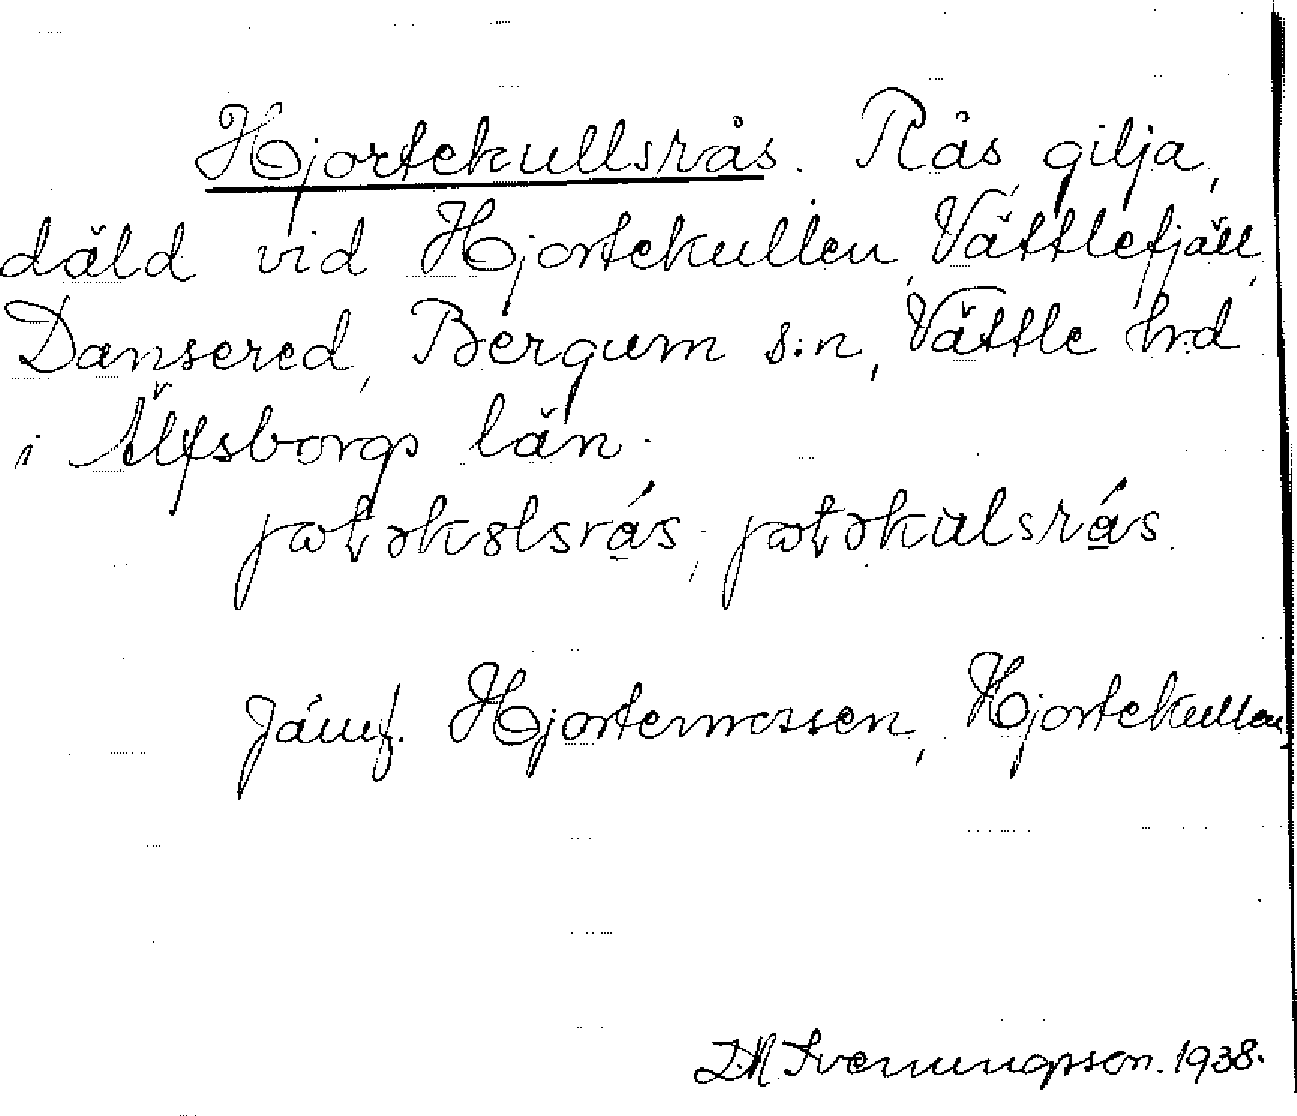 Hjortekullsrås. Rås gilja,
däld vid Hjortekullen, Vättlefjäll,
Dansered, Bergum s:n, Vättle hd
i Älfsborgs län.
jämf. Hjortemossen, Hjortekullen
Svenungsson. 1938.